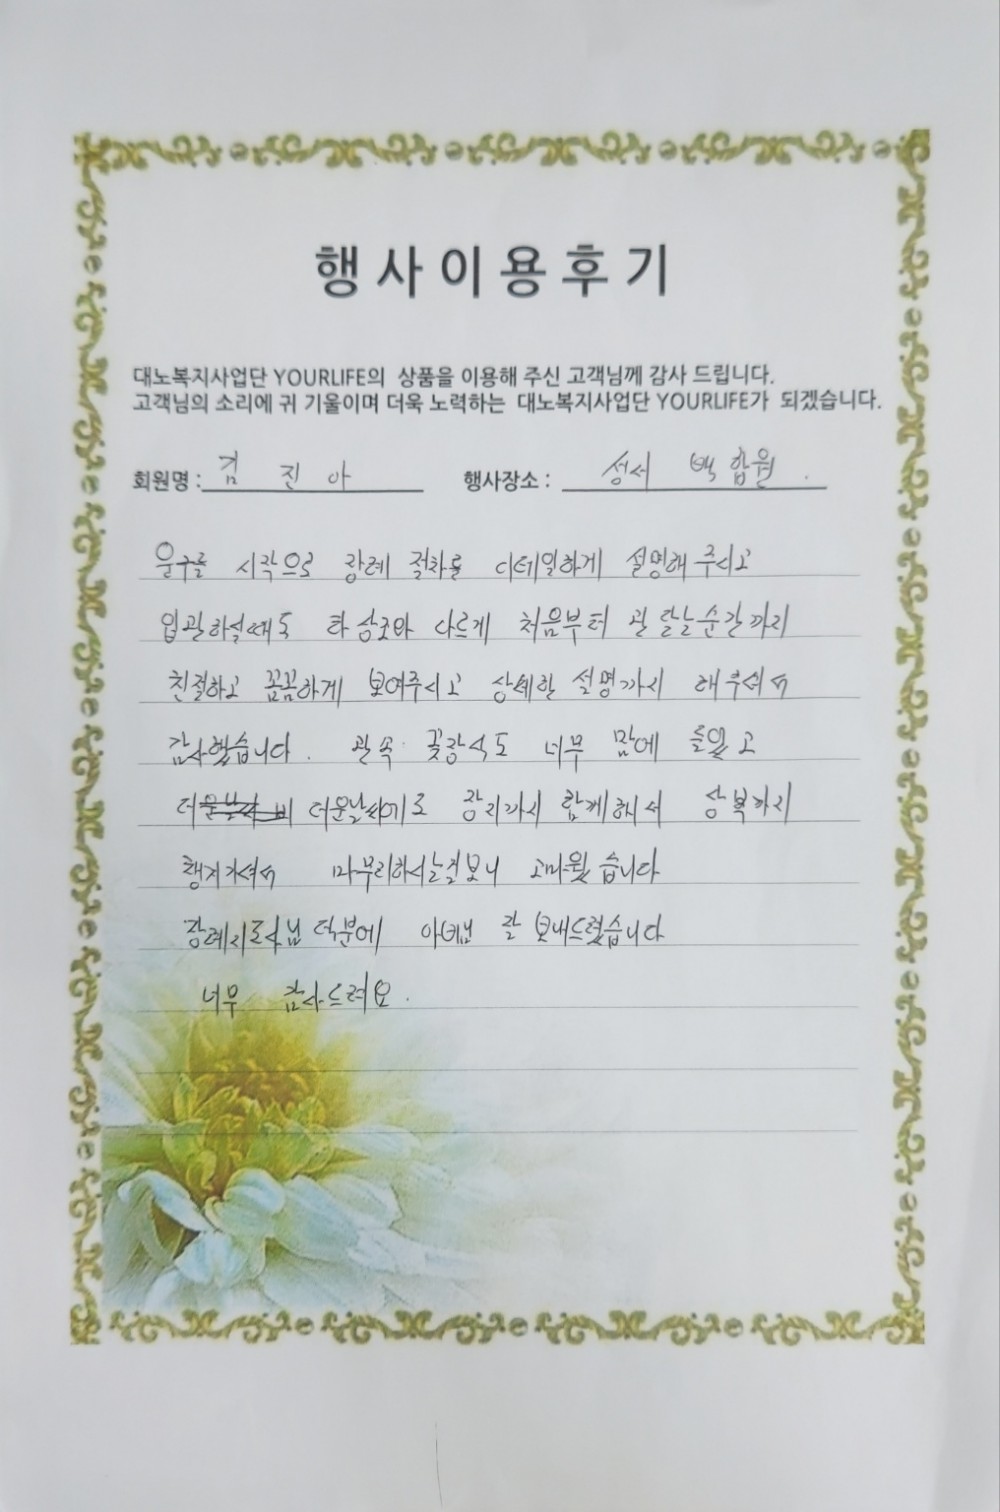 행사이용후기
대노복지사업단 YOURLIFE의 상품을 이용해 주신 고객님께 감사 드립니다.
고객님의 소리에 귀 기울이며 더욱 노력하는 대노복지사업단 YOURLIFE가 되겠습니다.
회원명 : 김 진 아 행사장소 : 성서 백합원.
운구를 시작으로 장례 절차를 디테일하게 설명해 주시고
입관하실때도 타 상조와 다르게 처음부터 관 닫는순간까지
친절하고 꼼꼼하게 보여주시고 상세한 설명까지 해주셔서
감사했습니다. 관속 꽃장식도 너무 맘에 들었고
더운날씨에도 장지까지 함께하셔서 상복까지
챙겨가셔서 마무리하시는걸보니 고마웠습니다
장례지도사님 덕분에 아버님 잘 보내드렸습니다
너무 감사드려요.